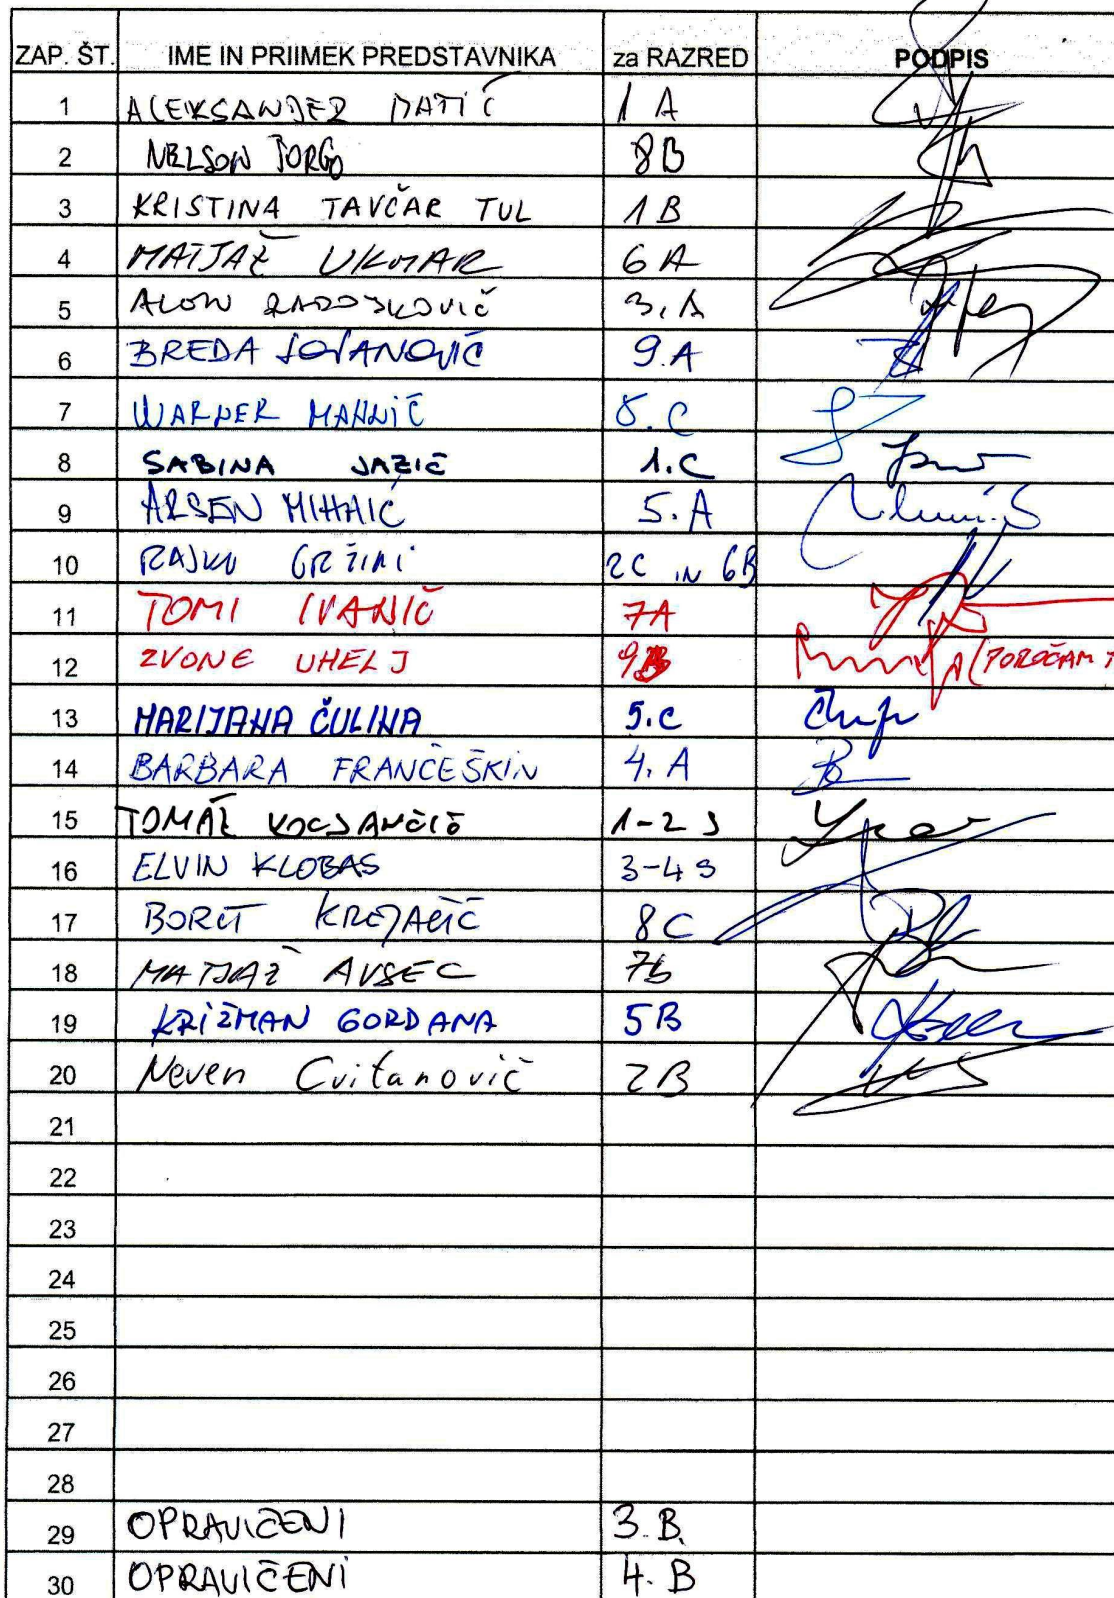 ZAP. ŠT. IME IN PRIIMEK PREDSTAVNIKA za RAZRED PODPIS
1 ALEKSANDER MATIĆ 1 A
2 NELSON JORGO 8B
3 KRISTINA TAVČAR TUL 1 B
4 MATJAŽ UKMAR 6 A
5 ALON RADOJKOVIČ 3. A
6 BREDA JOVANOVIĆ 9.A
7 WARNER MAHNIČ 8. C
8 SABINA JAZIĆ 1.C
9 ARSEN MIHAIĆ 5. A
10 RAJKO GRŽINI 2C IN 6B
11 TOMI IVANIČ 7A
12 ZVONE UHELJ 9B (POROČAM
13 MARIJANA ČULINA 5.C
14 BARBARA FRANCEŠKIN 4. A
15 TOMAŽ KOCJANČIČ 1-2 S
16 ELVIN KLOBAS 3-4 S
17 BORUT 8C
18 MATJAŽ AVSEC 7b
19 KRIŽMAN GORDANA 5B
20 Neven Cvitanovič 2B
21
22
23
24
25
26
27
28
29 OPRAVIČENI 3. B.
30 OPRAVIČENI 4. B